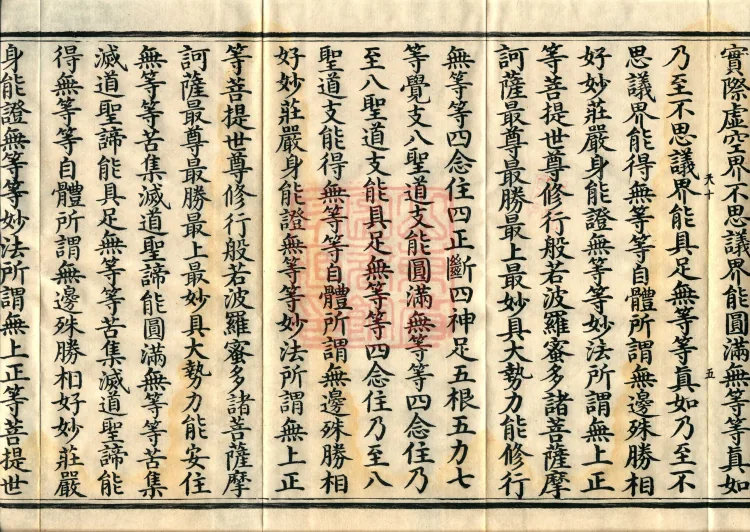 實際虛空界不思議界能圓滿無等等真如
乃至不思議界能具足無等等真如乃至不
天十
五
思議界能得無等等自體所謂無邊殊勝相
好妙莊嚴身能證無等等妙法所謂無上正
等菩提世尊修行般若波羅蜜多諸菩薩摩
訶薩最尊最勝最上最妙具大勢力能修行
無等等四念住四正斷四神足五根五力七
等覺支八聖道支能圓滿無等等四念住乃
至八聖道支能具足無等等四念住乃至八
聖道支能得無等等自體所謂無邊殊勝相
好妙莊嚴身能證無等等妙法所謂無上正
等菩提世尊修行般若波羅蜜多諸菩薩摩
訶薩最尊最勝最上最妙具大勢力能安住
無等等苦集滅道聖諦能圓滿無等等苦集
滅道聖諦能具足無等等苦集滅道聖諦能
得無等等自體所謂無邊殊勝相好妙莊嚴
身能證無等等妙法所謂無上正等菩提世